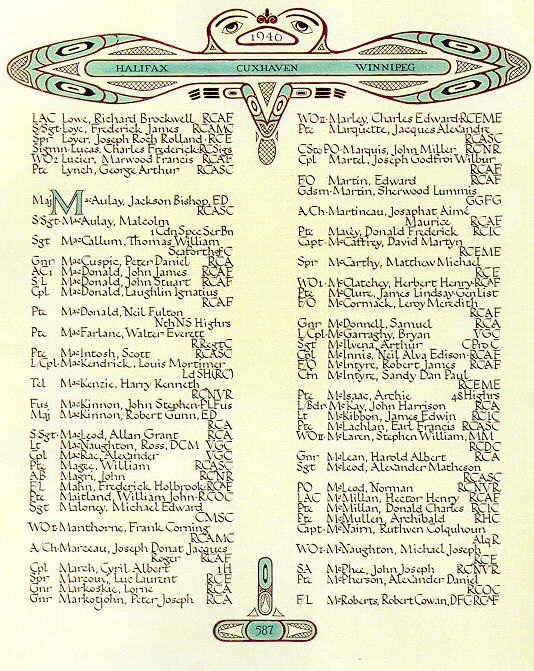 1946
HALIFAX CUXHAVEN WINNIPEG
LAC Lowe, Richard Brockwell RCAF
S/Sgt Loye, Frederick James RCAMC
Spr Loyer, Joseph Roch Rolland RCE
Sigmn Lucas, Charles Frederick RCSigs
WO2 Lucier, Marwood Francis RCAF
Pte Lynch, George Arthur RCASC
Maj MacAulay, Jackson Bishop, ED
RCASC
S/Sgt MacAulay, Malcolm
1 Cdn Spec Ser Bn
Sgt MacCallum, Thomas William
Seaforth of C
Gnr MacCuspic, Peter Daniel RCA
AC1 MacDonald, John James RCAF
S/L MacDonald, John Stuart RCAF
Cpl MacDonald, Laughlin Ignatius
RCAF
Pte MacDonald, Neil Fulton
Nth NS Highrs
Pte MacFarlane, Walter Everett
R Regt C
Pte MacIntosh, Scott RCASC
L/Cpl MacKendrick, Louis Mortimer
Ld SH(RC)
Tel MacKenzie, Harry Kenneth
RCNVR
Fus MacKinnon, John Stephen PL Fus
Maj MacKinnon, Robert Gunn, ED
RCA
S/Sgt MacLeod, Allan Grant RCA
Lt MacNaughton, Ross, DCM VGC
Cpl MacRae, Alexander VGC
Pte Magee, William RCASC
AB Magri, John RCNR
F/L Mahn, Frederick Holbrook RCAF
Pte Maitland, William John RCOC
Sgt Maloney, Michael Edward
CMSC
WO2 Manthorne, Frank Corning
RCAMC
A/Ch Marceau, Joseph Donat Jacques
Roger RCAF
Cpl March, Cyril Albert 1 H
Spr Marcoux, Luc Laurent RCE
Gnr Markoskie, Lorne RCA
Gnr Markotjohn, Peter Joseph RCA
WO2 Marley, Charles Edward RCEME
Pte Marquette, Jacques Alexandre
RCASC
CSto PO Marquis, John Miller RCNR
Cpl Martel, Joseph Godfroi Wilbur
RCAF
F/O Martin, Edward RCAF
Gdsm Martin, Sherwood Lummis
GGFG
A/Ch Martineau, Josaphat Aimé
Maurice RCAF
Pte Maxey, Donald Frederick RCIC
Capt McCaffrey, David Martyn
RCEME
Spr McCarthy, Matthew Michael
RCE
WO1 McClatchey, Herbert Henry RCAF
Pte McClure, James Lindsay Gen List
F/O McCormack, Leroy Meredith
RCAF
Gnr McDonnell, Samuel RCA
L/Cpl McGarraghy, Bryan VGC
Sgt McIlvena, Arthur C Pro C
Cpl McInnis, Neil Alva Edison RCAF
F/O McIntyre, Robert James RCAF
Cfn McIntyre, Sandy Dan Paul
RCEME
Pte McIsaac, Archie 48 Highrs
L/Bdr McKay, John Harrison RCA
Lt McKibbon, James Edwin RCIC
Pte McLachlan, Earl Francis RCASC
WO II McLaren, Stephen William, MM
RCDC
Gnr McLean, Harold Albert RCA
Sgt McLeod, Alexander Matheson
RCASC
PO McLeod, Norman RCNVR
LAC McMillan, Hector Henry RCAF
Pte McMillan, Donald Charles RCIC
Pte McMullen, Archibald RHC
Capt McNairn, Ruthven Colquhoun
Alq R
WO2 McNaughton, Michael Joseph
RCE
SA McPhee, John Joseph RCNVR
Pte McPherson, Alexander Daniel
RCOC
F/L McRoberts, Robert Cowan, DFC RCAF
587